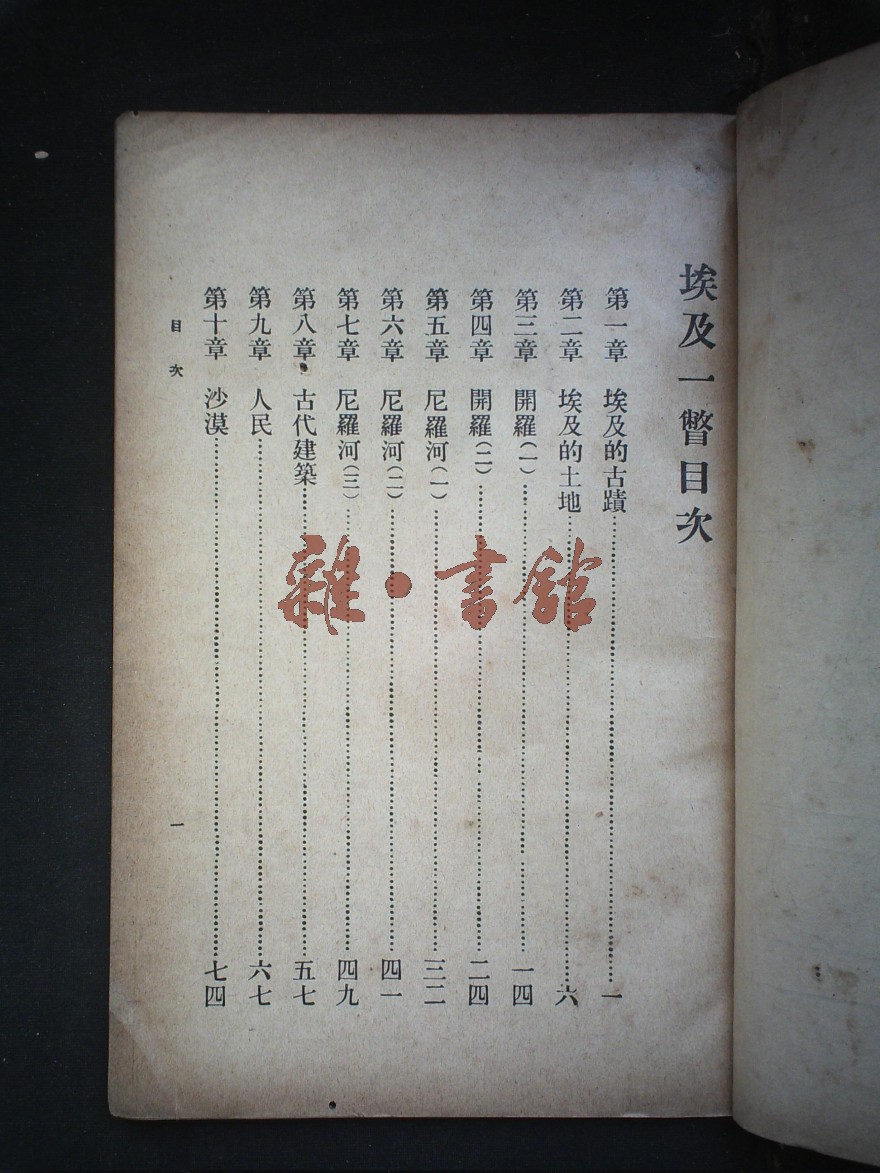 埃及一瞥目次
第一章 埃及的古蹟……一
第二章 埃及的土地……六
第三章 開羅(一)……一四
第四章 開羅(二)……二四
第五章 尼羅河(一)……三二
第六章 尼羅河(二)……四一
第七章 尼羅河(三)……四九
第八章 古代建築……五七
第九章 人民……六七
第十章 沙漠……七四
目次 一
雜·書館